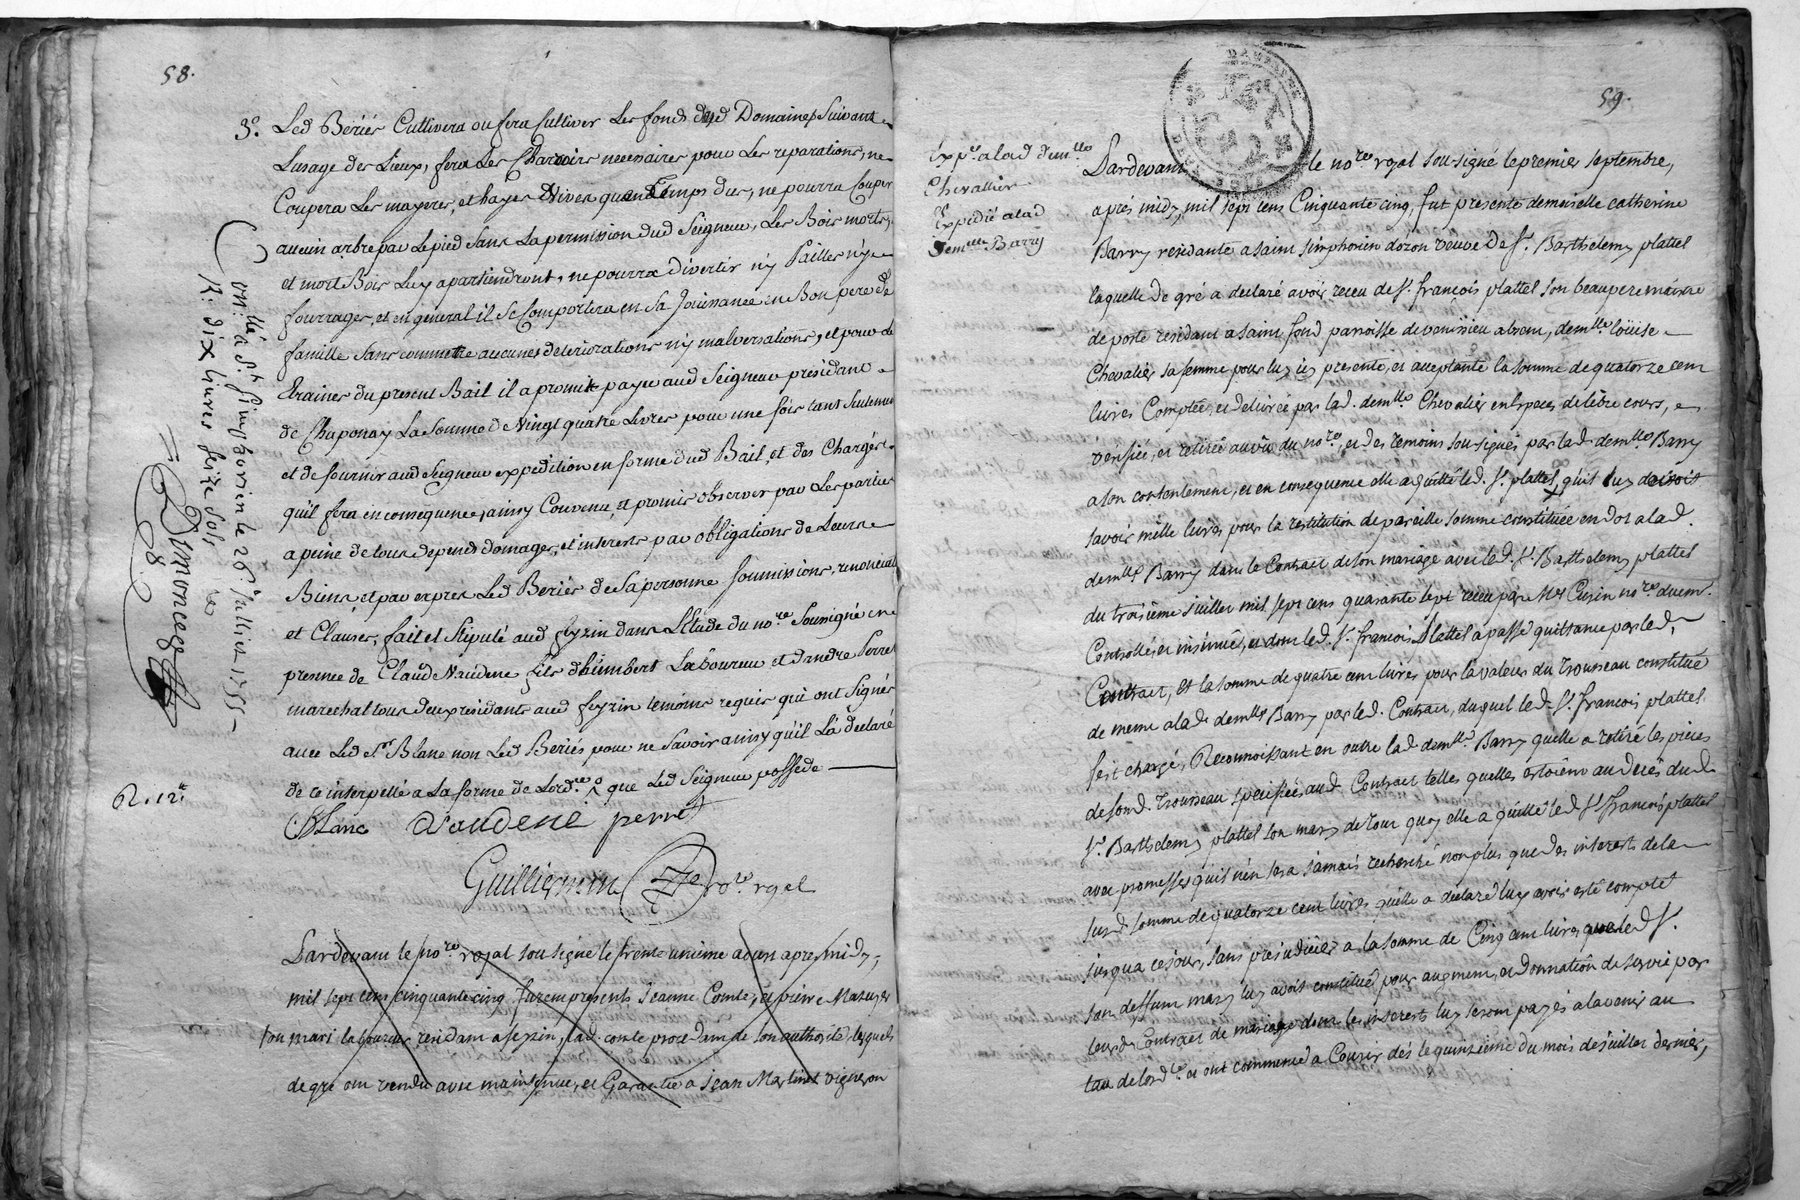 58.
3°. Led Beriés Cultivera ou fera Cultiver Les fonds dud Domaine Suivant
Lusage des Lieux, fera Les Charrois necessaires pour Les reparations, ne
Coupera Les mayeres, et hayes Vives quen Temps dus, ne pourra Couper
aucun arbre par Le pied Sans La permission dud Seigneur, Les Bois morts,
et mort Bois Luy apartiendront, ne pourra divertir n'y Pailles n'y
fourrages, et en general il Se Comportera en Sa Jouissance en Bon pere de
famille Sans commettre aucunes deteriorations n'y malversations, et pour
Etraines du present Bail il a promit payer aud Seigneur présidant
de Chaponay La Somme de Vingt quatre Livres pour une fois tant Seulement
et de fournir aud Seigneur expedition en forme dud Bail, et des Charges
quil fera en consequence, ainsy Convenu, et promis observer par Les parties
a peine de tous depends domages, et interests par obligations de Leurs
Biens et par expres Led Beriés de Sa personne Soumissions, renonciations
et Clauses, fait et Stipulé aud feyzin dans L'Etude du nore Sousigné en
presence de Claude Naudene fils d'humbert Laboureur et d'andré Perret
marechal tous deux residants aud feyzin temoins requis qui ont Signés
avec Led Sr Blanc non Led Beriés pour ne Savoir ainsy qu'il L'a declaré
de ce interpellé a La forme de Lordce que Led Seigneur possede
Blanc Naudene perret
Guilliermin nore rgal
Conllé a St Simphorien le 26 Juillet 1755
R. dix livres Seize Sols
R. 12s
Pardevant le nore royal sousigné le trente unieme aoust apres midy,
mil sept cens cinquante cinq furent presents Jeanne Comte, et pierre Mazuyer
son mari laboureur residant a feyzin, lad. comte procedant de son authorité, lesquels
de gré ont vendu avec maintenue, et Garantie a Jean Martinet vigneron
59.
Expé. a lad demlle
Chevallier
Expedié a lad
Demlle Barry
Pardevant le nore royal sousigné le premier septembre,
après midy, mil sept cens Cinquante cinq, fut presente demoiselle catherine
Barry residante a saint simphorien dozon veuve de Sr. Barthelemy plattel
laquelle de gré a declaré avoir receu de Sr. françois plattel son beaupere maitre
de poste residant a saint fond parroisse de venissieu absent, demlle loüise
Chevalier sa femme pour luy icy presente, et acceptante la somme de quatorze cent
livres Comptée, et delivrée par lad. demlle Chevalier en Especes de libre cours,
verifiée, et retirée au vû du nore, et des temoins sousignés par lad demlle Barry
a son contentement, et en consequence elle a quitté led. Sr. plattel, qu'il luy devoit
savoir mille livres pour la restitution de pareille somme constituée en dot a lad.
demlle Barry dans le Contract de son mariage avec led. Sr. Barthelemy plattel
du troisieme juillet mil sept cens quarante sept receu par Me Cuzin nore
Controllé, et insinué, et dont led. Sr. françois Plattel a passé quittance par led.
Contract, et la somme de quatre cent livres pour la valeur du trousseau constitué
de meme a lad demlle Barry par led. Contract, duquel led. Sr. françois plattel
s'est chargé, Reconnoissant en outre lad demlle. Barry quelle a retiré les pieces
de sond. trousseau specifiées aud. Contract telles quelles estoient au décès dud.
Sr. Barthelemy plattel son mary de tout quoy elle a quitté led. Sr françois plattel
avec promesses qu'il n'en sera jamais recherché non plus que des interests de la
susd. somme de quatorze cent livres qu'elle a declaré luy avoir esté compté
jusqua ce jour, sans prejudicier a la somme de Cinq cent livres que led. Sr.
son deffunt mary luy avoit constitué pour augment, et donnation de survie par
leurd. Contract de mariage dont les interests luy seront payés a lavenir au
taux de lordce. et ont commencé a Courir dès le quinzieme du mois de juillet dernier,